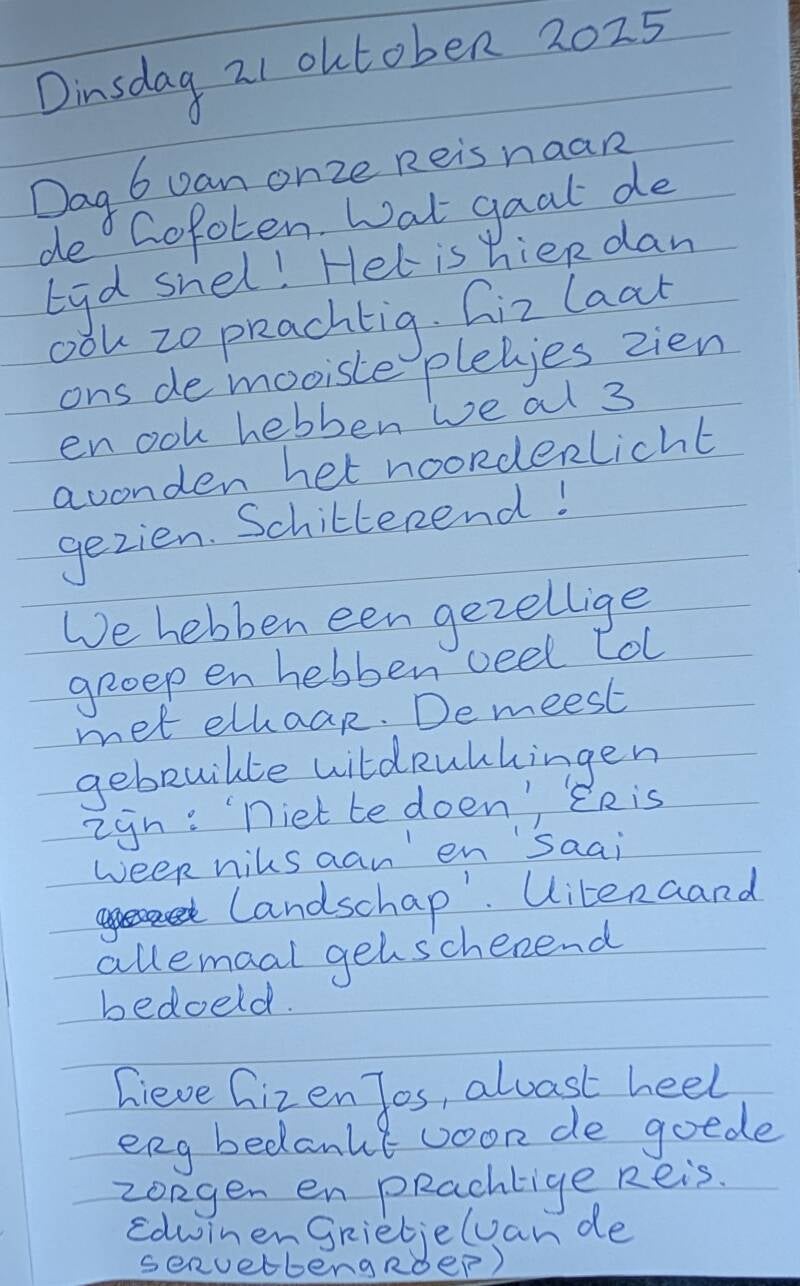 Dinsdag 21 oktober 2025
Dag 6 van onze reis naar
de Lofoten. Wat gaat de
tijd snel! Het is hier dan
ook zo prachtig. Liz laat
ons de mooiste plekjes zien
en ook hebben we al 3
avonden het noorderlicht
gezien. Schitterend!
We hebben een gezellige
groep en hebben veel lol
met elkaar. De meest
gebruikte uitdrukkingen
zijn: 'Niet te doen', 'Er is
weer niks aan' en 'Saai
landschap'. Uiteraard
allemaal gekscherend
bedoeld.
Lieve Liz en Jos, alvast heel
erg bedankt voor de goede
zorgen en prachtige reis.
Edwin en Grietje (van de
servettengroep)